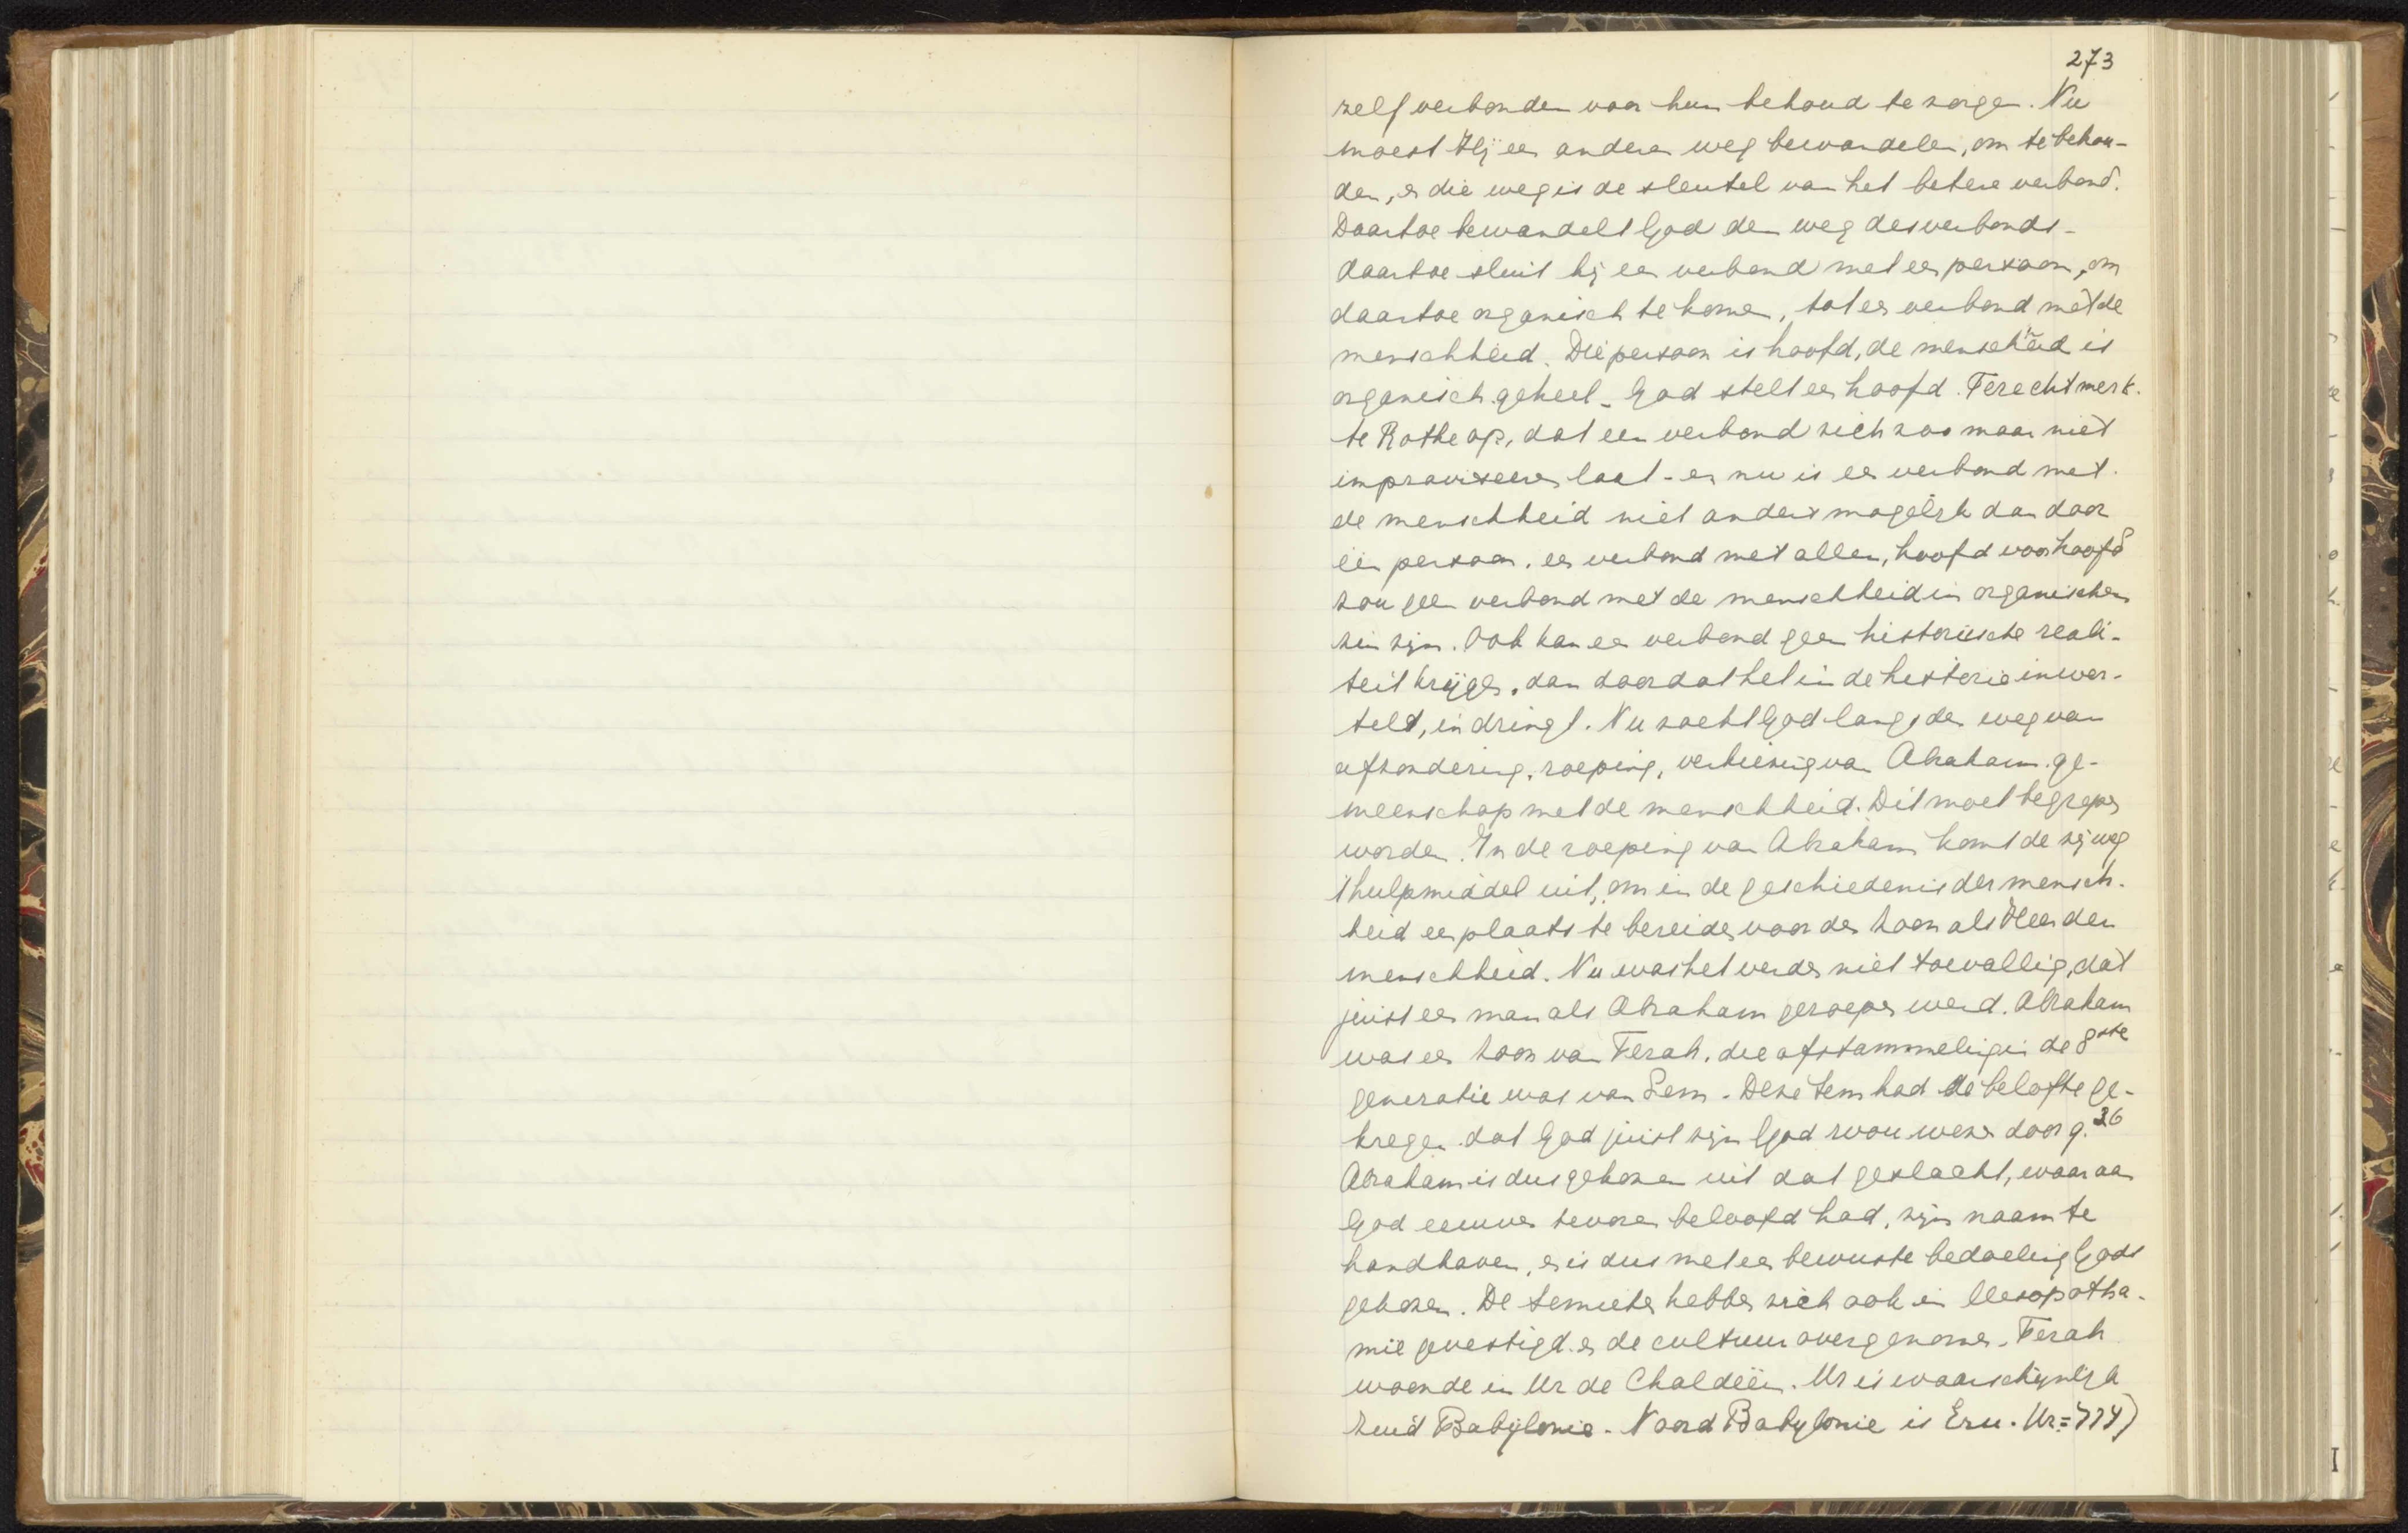 273
zelf verbonden voor hun behoud te zorgen. Nu
moest Hij een anderen weg bewandelen, om te behou-
den, en die weg is de sleutel van het betere verbond.
Daartoe bewandelt God den weg des verbonds -
daartoe sluit hij een verbond met een persoon, om
daartoe organisch te komen, tot een verbond met de
menschheid. Die persoon is hoofd, de menschheid is
organisch geheel - God stelt een hoofd. Terecht merk-
te Rothe op, dat een verbond zich zoo maar niet
improviseeren laat - en nu is een verbond met
de menschheid niet anders mogelijk dan door
één persoon. een verbond met allen, hoofd voor hoofd
zou geen verbond met de menschheid in organischen
zin zijn. Ook kan een verbond geen historische reali-
teit krijgen, dan doordat het in de historie inwor-
telt, indringt. Nu zocht God langs den weg van
afzondering, roeping, verkiezing van Abraham ge-
meenschap met de menschheid. Dit moet begrepen
worden. In de roeping van Abraham komt de zijweg
't hulpmiddel uit, om in de geschiedenis der mensch-
heid een plaats te bereiden voor den Zoon als Heer der
menschheid. Nu was het verder niet toevallig, dat
juist een man als Abraham geroepen werd. Abraham
was een zoon van Terah, die afstammeling in de 8ste
generatie was van Sem. Deze Sem had de belofte ge-
kregen dat God juist zijn God zou wezen door 9:26
Abraham is dus gekozen uit dat geslacht, waaraan
God eeuwen tevoren beloofd had, zijn naam te
handhaven, en is dus met een bewuste bedoeling Gods
gekozen. De Semieten hebben zich ook in Mesopotha-
mië gevestigd en de cultuur overgenomen. Terah
woonde in Ur de Chaldeën. Ur is waarschijnlijk
Zuid Babylonië. Noord Babylonië is Eru. Ur =